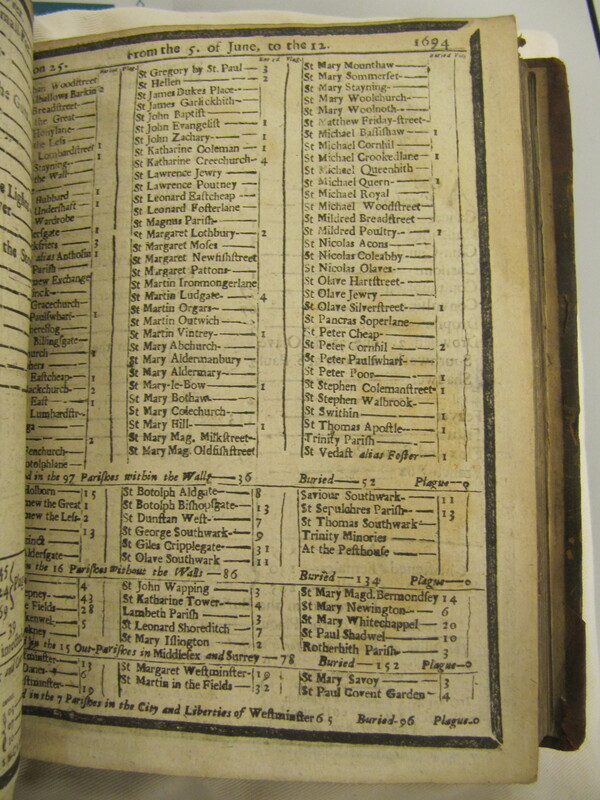 on 25.
From the 5. of June, to the 12.
1694
Buried Plag.
Buried Plag.
Buried Plag.
Woodstreet
Barkin 2
Breadstreet
the Great
Honylane
the Less
Lombardstreet 1
Stayning 1
the Wall
Hubbard 1
Undershaft 1
Wardrobe
1
3
alias Antholin 1
Parish
new Exchange
Gracechurch
Paulswharf 1
Billingsgate
8
Eastcheap 1
2
East 1
Lumbardstr
2
St Gregory by St. Paul 3
St Hellen 2
St James Dukes Place
St James Garlickhith
St John Baptist
St John Evangelist 1
St John Zachary 1
St Katharine Coleman 1
St Katharine Creechurch 4
St Lawrence Jewry
St Lawrence Poutney
St Leonard Eastcheap
St Leonard Fosterlane
St Magnus Parish
St Margaret Lothbury 2
St Margaret Moses
St Margaret Newfishstreet
St Margaret Pattons
St Martin Ironmongerlane
St Martin Ludgate 4
St Martin Orgars
St Martin Outwich
St Martin Vintrey 1
St Mary Abchurch
St Mary Aldermanbury
St Mary Aldermary
St Mary-le-Bow 1
St Mary Bothaw
St Mary Colechurch
St Mary Hill 1
St Mary Mag. Milkstreet
St Mary Mag. Oldfishstreet
St Mary Mounthaw
St Mary Sommerset
St Mary Stayning
St Mary Woolchurch
St Mary Woolnoth
St Matthew Friday-street
St Michael Bassishaw 1
St Michael Cornhil
St Michael Crookedlane 1
St Michael Queenhith
St Michael Quern 1
St Michael Royal
St Michael Woodstreet
St Mildred Breadstreet
St Mildred Poultry 1
St Nicolas Acons
St Nicolas Coleabby
St Nicolas Olaves
St Olave Hartstreet
St Olave Jewry
St Olave Silverstreet 1
St Pancras Soperlane
St Peter Cheap
St Peter Cornhil 2
St Peter Paulswharf
St Peter Poor 1
St Stephen Colemanstreet 1
St Stephen Walbrook
St Swithin 1
St Thomas Apostle 1
Trinity Parish
St Vedast alias Foster 1
in the 97 Parishes within the Walls 36 Buried 52 Plague 0
15
new the Great 1
new the Less 2
13
Aldersgate
St Botolph Aldgate 8
St Botolph Bishopsgate 13
St Dunstan West 7
St George Southwark 9
St Giles Cripplegate 31
St Olave Southwark 11
Saviour Southwark 11
St Sepulchres Parish 13
St Thomas Southwark
Trinity Minories
At the Pesthouse
the 16 Parishes without the Walls 86 Buried 134 Plague 0
4
43
Fields 28
5
St John Wapping 3
St Katharine Tower 4
Lambeth Parish 3
St Leonard Shoreditch 7
St Mary Islington 2
St Mary Magd. Bermondsey 14
St Mary Newington 6
St Mary Whitechappel 20
St Paul Shadwel 10
Rotherhith Parish 3
in the 15 Out-Parishes in Middlesex and Surrey 78 Buried 152 Plague 0
13
6
19
St Margaret Westminster 19
St Martin in the Fields 32
St Mary Savoy 3
St Paul Covent Garden 4
in the 7 Parishes in the City and Liberties of Westminster 65 Buried 96 Plague 0